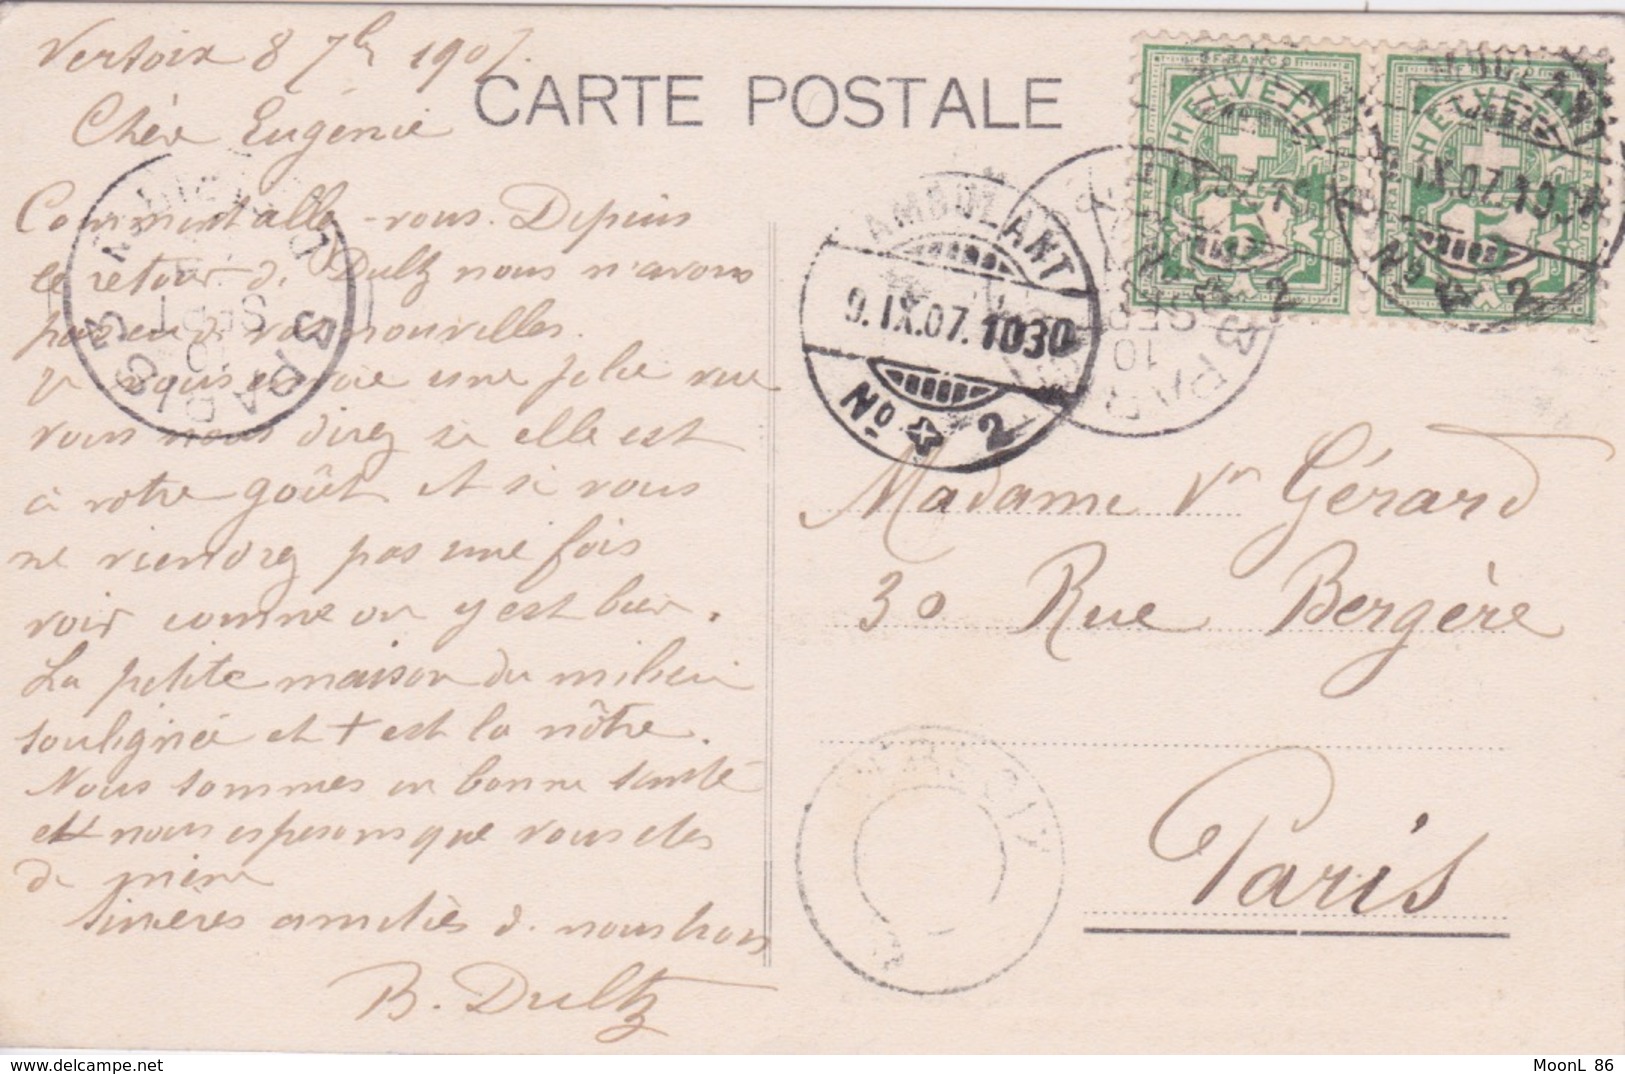 Versoix 8 7bre 1907.
CARTE POSTALE
Chère Eugénie
Comment allez-vous. Depuis
le retour de Dultz nous n'avons
pas eu de vos nouvelles.
Je vous envoie une jolie vue
vous nous direz si elle est
à votre goût et si vous
ne viendrez pas une fois
voir comme on y est bien.
La petite maison du milieu
soulignée et + est la nôtre.
Nous sommes en bonne santé
et nous esperons que vous etes
de même
Sincères amitiés de nous trois
B. Dultz
HELVETIA
FRANCO
5
HELVETIA
5
AMBULANT
9.IX.07.1030
No 2
AMBULANT
9.IX.07.1030
No 2
PARIS
10
SEPT
10
SEPT
Madame Vve Gérard
30 Rue Bergère
Paris
MoonL 86